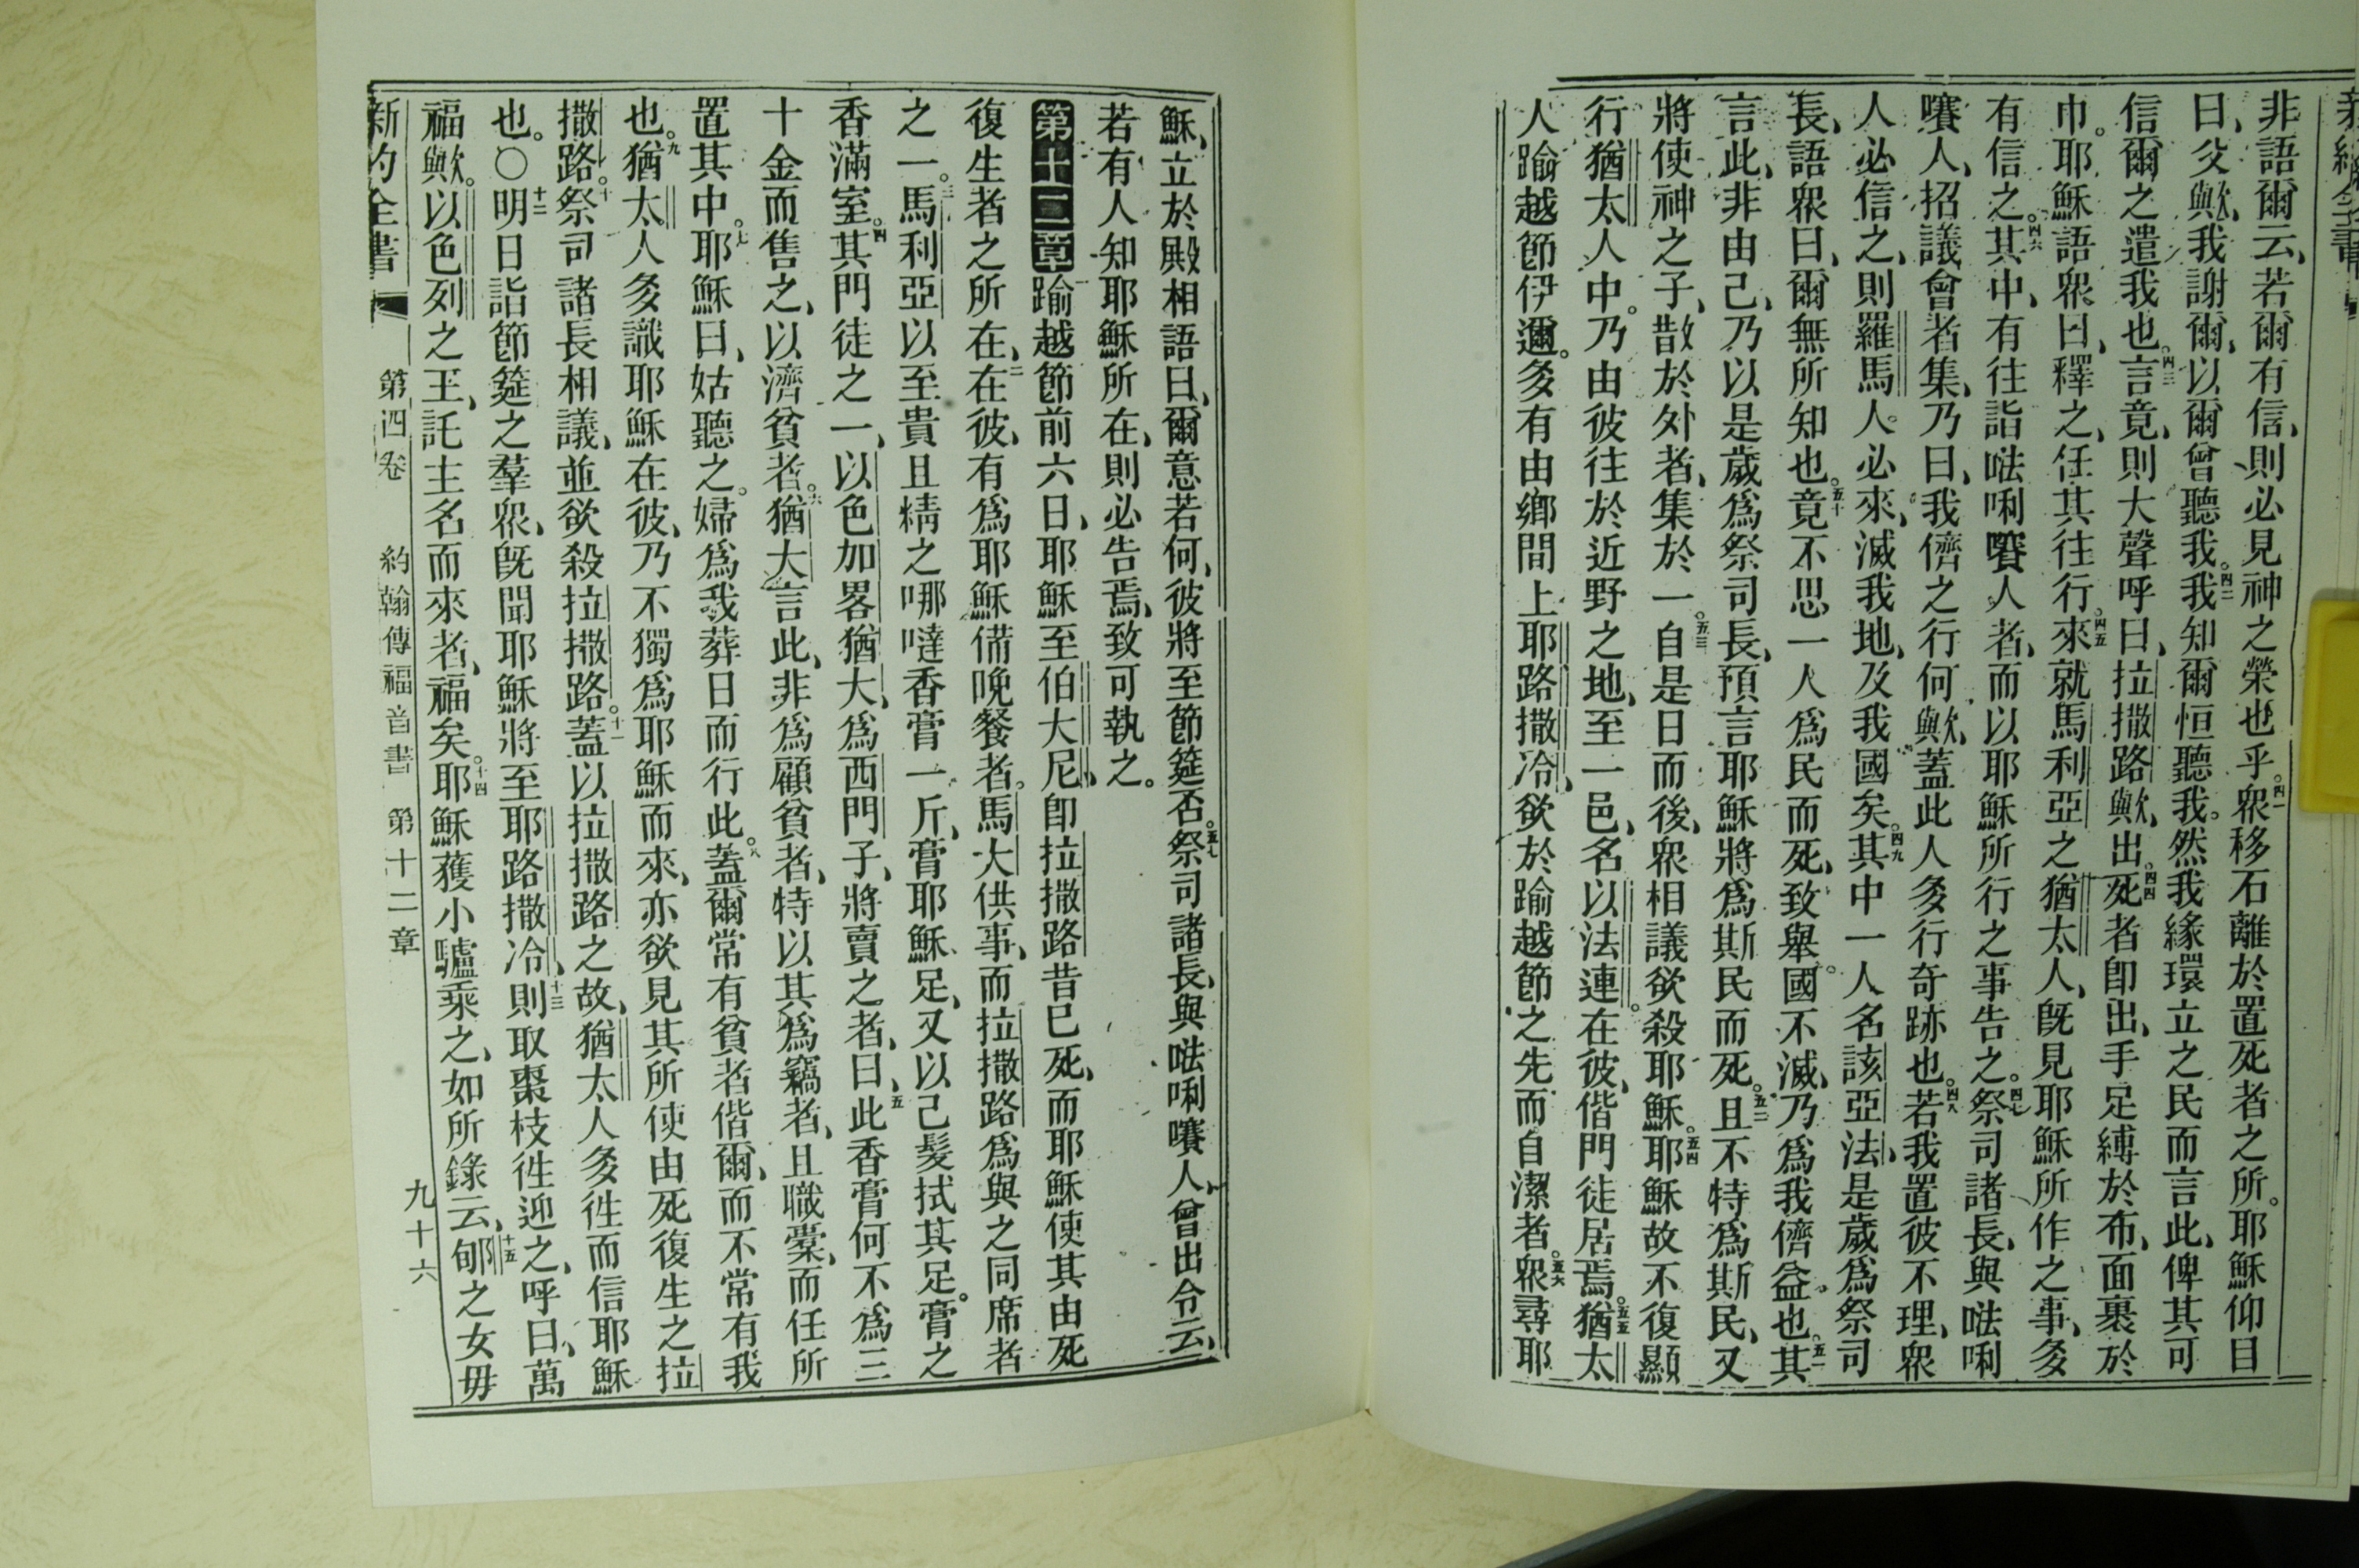 非語爾云、若爾有信、則必見神之榮也乎。四一衆移石離於置死者之所。耶穌仰目
曰、父歟、我謝爾、以爾曾聽我。四二我知爾恒聽我。然我緣環立之民而言此、俾其可
信爾之遣我也。四三言竟、則大聲呼曰、拉撒路歟、出。四四死者卽出、手足縛於布、面裹於
巾。耶穌語衆曰、釋之、任其往行。四五來就馬利亞之猶太人、旣見耶穌所作之事、多
有信之。四六其中、有往詣𠵽唎嚽人者、而以耶穌所行之事告之。四七祭司諸長、與𠵽唎
嚽人、招議會者集、乃曰、我儕之行何歟、蓋此人多行奇跡也。四八若我置彼不理、衆
人必信之、則羅馬人必來、滅我地、及我國矣。四九其中一人名該亞法、是歲爲祭司
長、語衆曰、爾無所知也。五十竟不思一人爲民而死、致舉國不滅、乃爲我儕益也。五一其
言此、非由己、乃以是歲爲祭司長、預言耶穌將爲斯民而死。五二且不特爲斯民、又
將使神之子、散於外者、集於一。五三自是日而後、衆相議欲殺耶穌。五四耶穌故不復顯
行猶太人中。乃由彼往於近野之地、至一邑、名以法連。在彼、偕門徒居焉。五五猶太
人踰越節伊邇。多有由鄉間上耶路撒冷、欲於踰越節之先而自潔者。五六衆尋耶
穌、立於殿相語曰、爾意若何、彼將至節筵否。五七祭司諸長、與𠵽唎嚽人、曾出令云、
若有人知耶穌所在、則必告焉、致可執之。
第十二章 一踰越節前六日、耶穌至伯大尼、卽拉撒路昔已死、而耶穌使其由死
復生者之所在、二在彼、有爲耶穌備晚餐者。馬大供事、而拉撒路爲與之同席者
之一。三馬利亞以至貴且精之哪噠香膏一斤、膏耶穌足、又以己髮拭其足。膏之
香滿室。四其門徒之一、以色加畧猶大、爲西門子、將賣之者、曰、五此香膏何不爲三
十金而售之、以濟貧者。六猶大言此、非爲顧貧者、特以其爲竊者、且職橐、而任所
置其中。七耶穌曰、姑聽之。婦爲我葬日而行此。八蓋爾常有貧者偕爾、而不常有我
也。九猶太人多識耶穌在彼、乃不獨爲耶穌而來、亦欲見其所使由死復生之拉
撒路。十祭司諸長相議、並欲殺拉撒路。十一蓋以拉撒路之故、猶太人多徃而信耶穌
也。○十二明日詣節筵之羣衆、旣聞耶穌將至耶路撒冷、十三則取棗枝徃迎之、呼曰、萬
福歟。以色列之王、託主名而來者、福矣。十四耶穌獲小驢乘之、如所錄云、十五郇之女毋
新約全書 第四卷 約翰傳福音書 第十二章 九十六